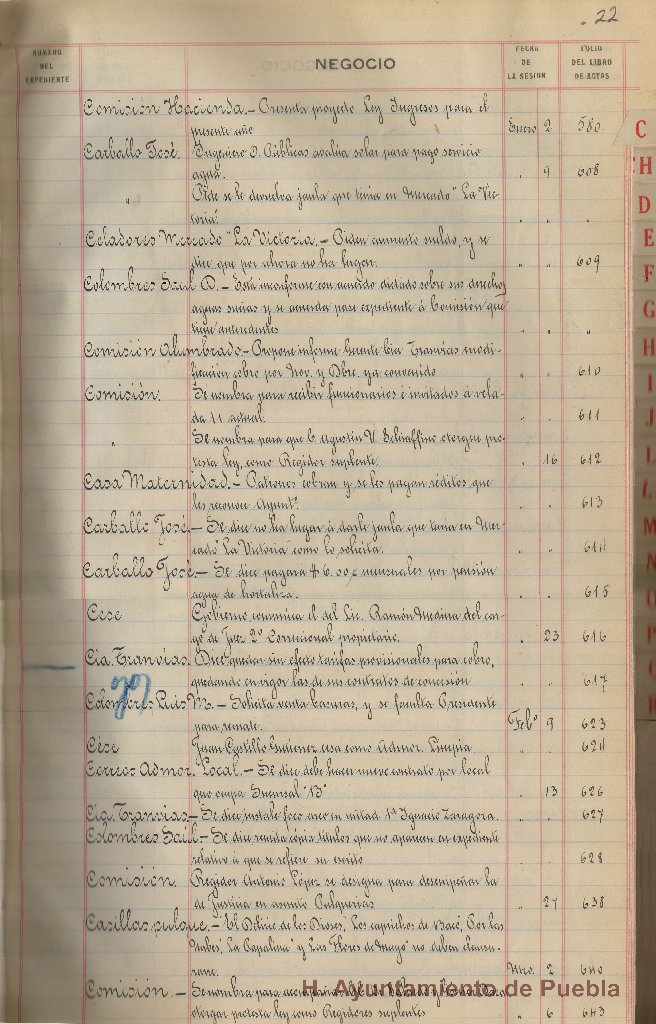 22
NUMERO DEL EXPEDIENTE
NEGOCIO
FECHA DE LA SESION
FOLIO DEL LIBRO DE ACTAS
Comisión Hacienda.- Presenta proyecto Ley Ingresos para el
presente año Enero 2 580
Carballo José. Ingeniero O. Públicas avalúa solar para pago servicio
agua. " 9 608
" Pide se le devuelva jaula que tenía en Mercado "La Vic-
toria". " " "
Celadores Mercado "La Victoria.- Piden aumento sueldo, y se
dice que por ahora no ha lugar. " " 609
Colombres Saúl D.- Está inconforme con acuerdo dictado sobre sus derechos
aguas sucias y se acuerda pase expediente á Comisión que
tiene antecedentes " " "
Comisión Alumbrado.- Propone informe Gerente Cía Tranvías modi-
ficación cobro por Nov. y Dbre. ya convenido " " 610
Comisión. Se nombra para recibir funcionarios é invitados á vela-
da 11 actual. " " 611
" Se nombra para que C. Agustin V. Schiaffino otorgue pro-
testa ley, como Regidor suplente. " 16 612
Casa Maternidad.- Patronos cobran y se les pagan réditos que
les reconoce Ayuntº. " " 613
Carballo José.- Se dice no ha lugar á darle jaula que tenía en Mer-
cado "La Victoria" como lo solicita. " " 614
Carballo José.- Se dice pagará $ 6.00 mensuales por pensión
agua de hortaliza. " " 615
Cese Gobierno comunica el del Lic. Ramón Medina del car-
go de Juez 2º Correccional propietario. " 23 616
Cía. Tranvías. Dice quedan sin efecto tarifas provisionales para cobro,
quedando en vigor las de sus contratos de concesión " " 617
Colombres Luis M.- Solicita venta basuras, y se faculta Presidente
para remate. Febº 9 623
Cése Juan Castillo Gutiérrez cesa como Admor. Limpia. " " 624
Correos Admor. Local.- Se dice debe hacer nuevo contrato por local
que ocupa Sucursal "B" " 13 626
Cía. Tranvías.- Se dice instale foco arco en mitad 1ª Ignacio Zaragoza. " " 627
Colombres Saúl.- Se dice remita copia títulos que no aparecen en expediente
relativo á que se refiere su escrito " " 628
Comisión. Regidor Antonio López se designa para desempeñar la
de Justicia en asunto Pulquerías " 27 638
Casillas pulque.- "El Delirio de los Dioses", Los caprichos de Baco, Por las
Nubes, La Capalina" y "Las Flores de Mayo" no deben clausu-
rarse. Mzo. 2 640
Comisión.- Se nombra para
otorgar protesta ley como Regidores suplentes " 6 643
H. Ayuntamiento de Puebla
C
H
D
E
F
G
H
I
J
L
L
M
N
O
P